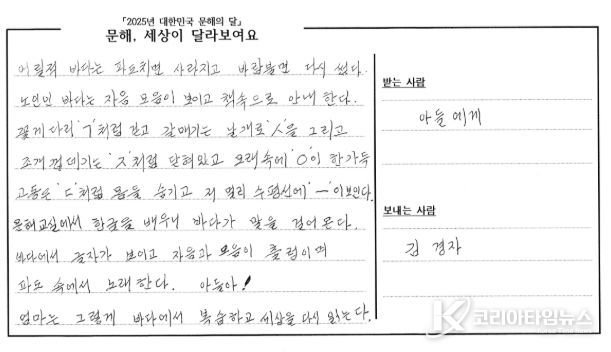 「2025년 대한민국 문해의 달」
문해, 세상이 달라보여요
어릴적 바다는 파도치면 사라지고 바람불면 다시 썼다.
노인인 바다는 자음 모음이 보이고 책속으로 안내 한다.
꽃게 다리 'ㄱ'처럼 걷고 갈매기는 날개로 'ㅅ'을 그리고
조개 껍데기는 'ㅈ'처럼 닫혀있고 모래속에 'ㅇ'이 한가득
고동은 'ㄷ'처럼 몸을 숨기고 저 멀리 수평선에 'ㅡ'이보인다.
문해교실에서 한글을 배우니 바다가 말을 걸어 온다.
바다에서 글자가 보이고 자음과 모음이 출렁이며
파도 속에서 노래한다. 아들아!
엄마는 그렇게 바다에서 복습하고 세상을 다시 읽는다.
받는 사람
아들에게
보내는 사람
김 경자
코리아타임뉴스